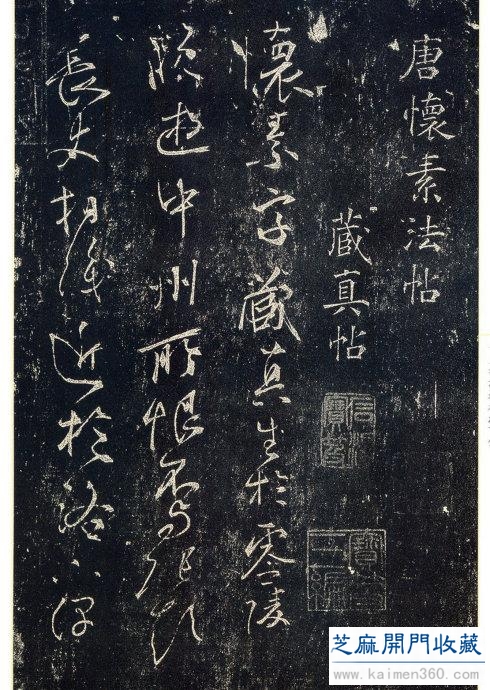 唐懷素法帖
藏真帖
懷素字藏真生於零陵
晚遊中州所恨不與張顛
長史相識近於洛下偶
芝麻開門收藏
www.kaimen360.com